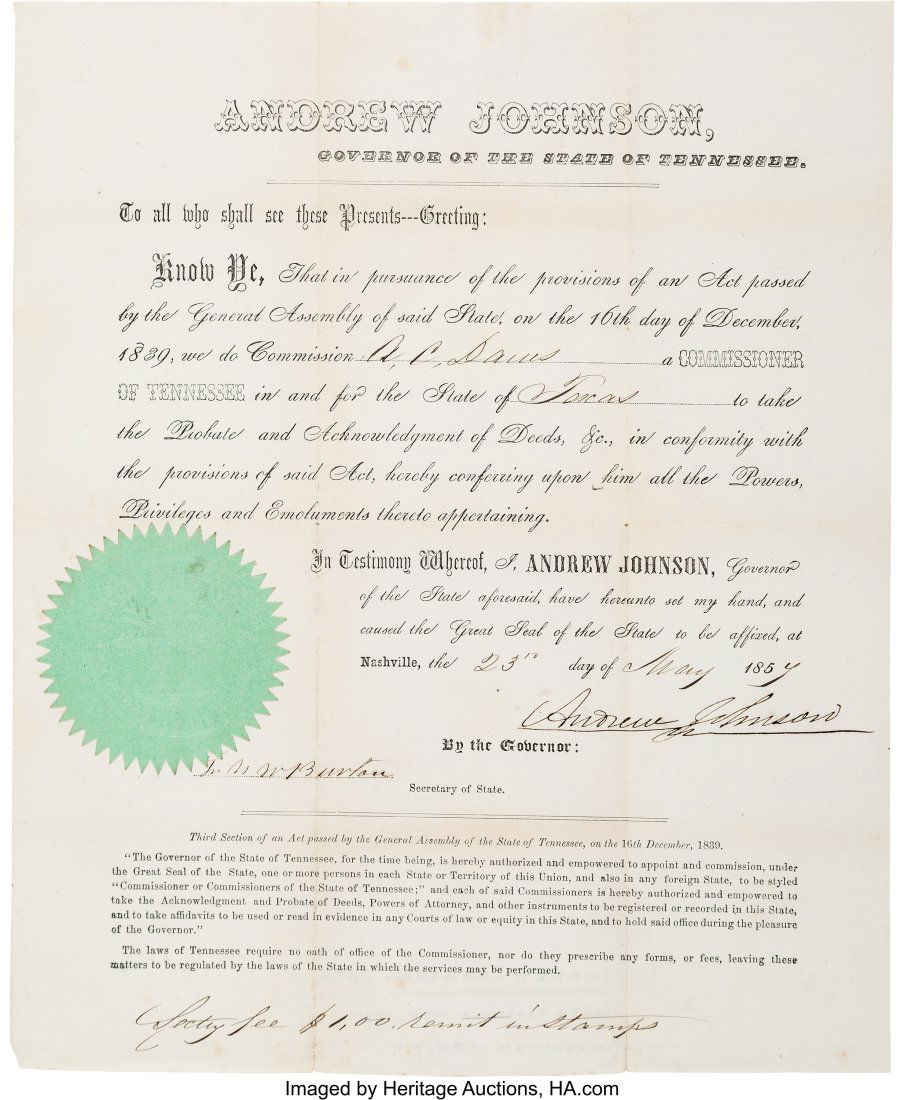 ANDREW JOHNSON,
GOVERNOR OF THE STATE OF TENNESSEE.
To all who shall see these Presents---Greeting:
Know Ye, That in pursuance of the provisions of an Act passed
by the General Assembly of said State, on the 16th day of December,
1839, we do Commission A. C. Daws a COMMISSIONER
OF TENNESSEE in and for the State of Texas to take
the Probate and Acknowledgment of Deeds, &c., in conformity with
the provisions of said Act, hereby conferring upon him all the Powers,
Privileges and Emoluments thereto appertaining.
In Testimony Whereof, I, ANDREW JOHNSON, Governor
of the State aforesaid, have hereunto set my hand, and
caused the Great Seal of the State to be affixed, at
Nashville, the 23rd day of May 1857
Andrew Johnson
By the Governor:
W Burton
Secretary of State.
Third Section of an Act passed by the General Assembly of the State of Tennessee, on the 16th December, 1839.
"The Governor of the State of Tennessee, for the time being, is hereby authorized and empowered to appoint and commission, under
the Great Seal of the State, one or more persons in each State or Territory of this Union, and also in any foreign State, to be styled
"Commissioner or Commissioners of the State of Tennessee;" and each of said Commissioners is hereby authorized and empowered to
take the Acknowledgment and Probate of Deeds, Powers of Attorney, and other instruments to be registered or recorded in this State,
and to take affidavits to be used or read in evidence in any Courts of law or equity in this State, and to hold said office during the pleasure
of the Governor."
The laws of Tennessee require no oath of office of the Commissioner, nor do they prescribe any forms, or fees, leaving these
matters to be regulated by the laws of the State in which the services may be performed.
Secty fee $1,00. remit in stamps
Imaged by Heritage Auctions, HA.com